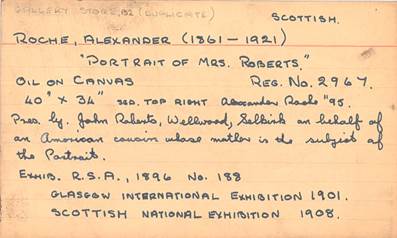 GALLERY STORE, B2 (DUPLICATE)
SCOTTISH.
ROCHE, ALEXANDER (1861-1921)
"PORTRAIT OF MRS. ROBERTS."
OIL ON CANVAS REG. No. 2967.
40" x 34" SGD. TOP RIGHT Alexander Roche "95.
Pres. by. John Roberts, Wellwood, Selkirk on behalf of
an American cousin whose mother is the subject of
the Portrait.
EXHIB. R.S.A., 1896 No. 188
GLASGOW INTERNATIONAL EXHIBITION 1901.
SCOTTISH NATIONAL EXHIBITION 1908.